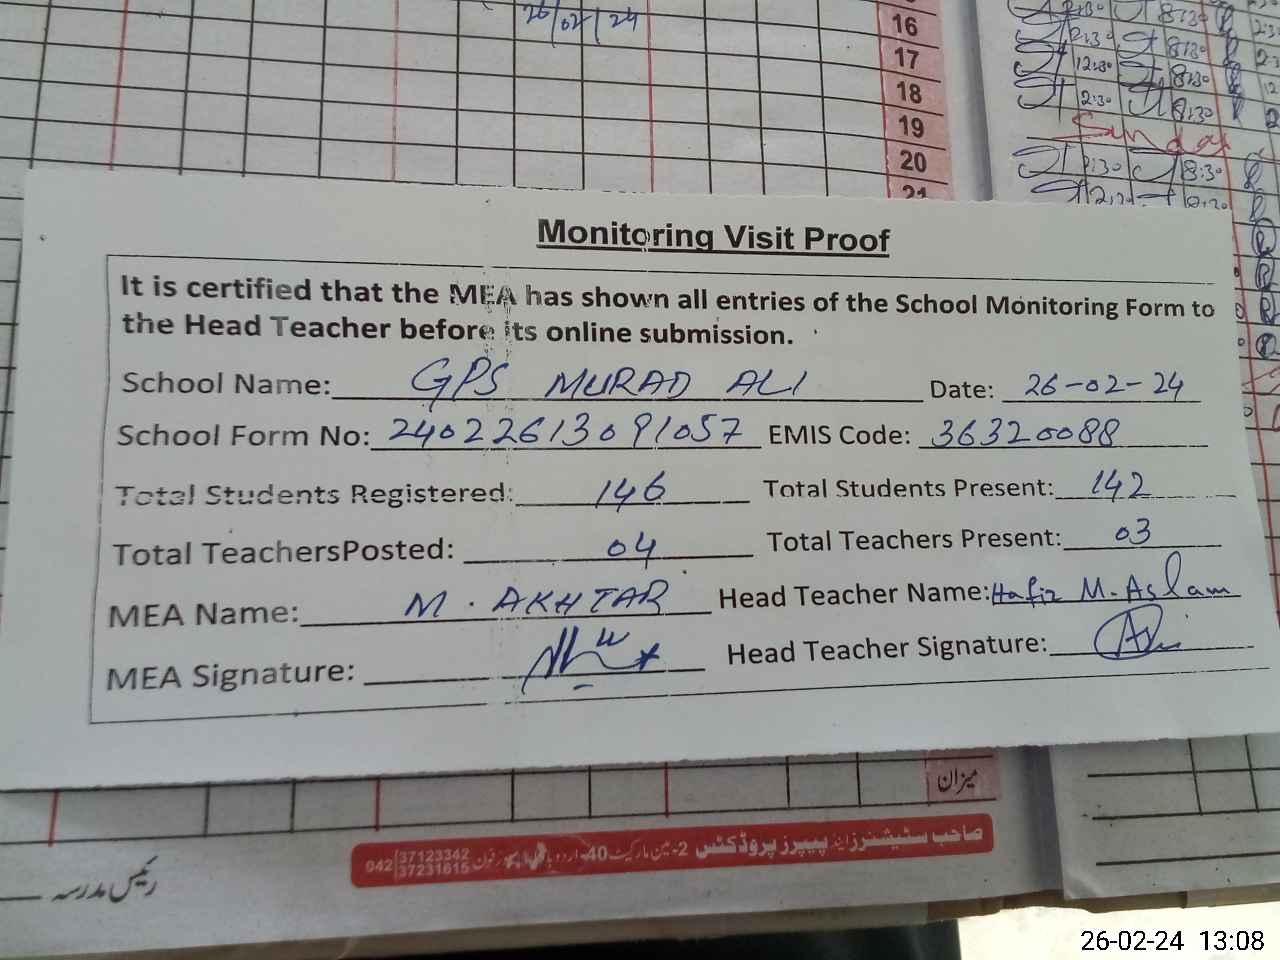 26/02/24
16
17
18
19
20
21
2:30 8:30
2:30 8:30
12:30 8:30
2:30 8:30
Sunday
8:30
Monitoring Visit Proof
It is certified that the MEA has shown all entries of the School Monitoring Form to
the Head Teacher before its online submission.
School Name: GPS MURAD ALI Date: 26-02-24
School Form No: 24022613091057 EMIS Code: 36320088
Total Students Registered: 146 Total Students Present: 142
Total TeachersPosted: 04 Total Teachers Present: 03
MEA Name: M. AKHTAR Head Teacher Name: Hafiz M. Aslam
MEA Signature: Head Teacher Signature:
میزان
صاحب سٹیشنرز اینڈ پیپرز پروڈکٹس 2-مین مارکیٹ 40-اردو بازار لاہور فون 042 37123342
37231615
رئیس مدرسہ
26-02-24 13:08